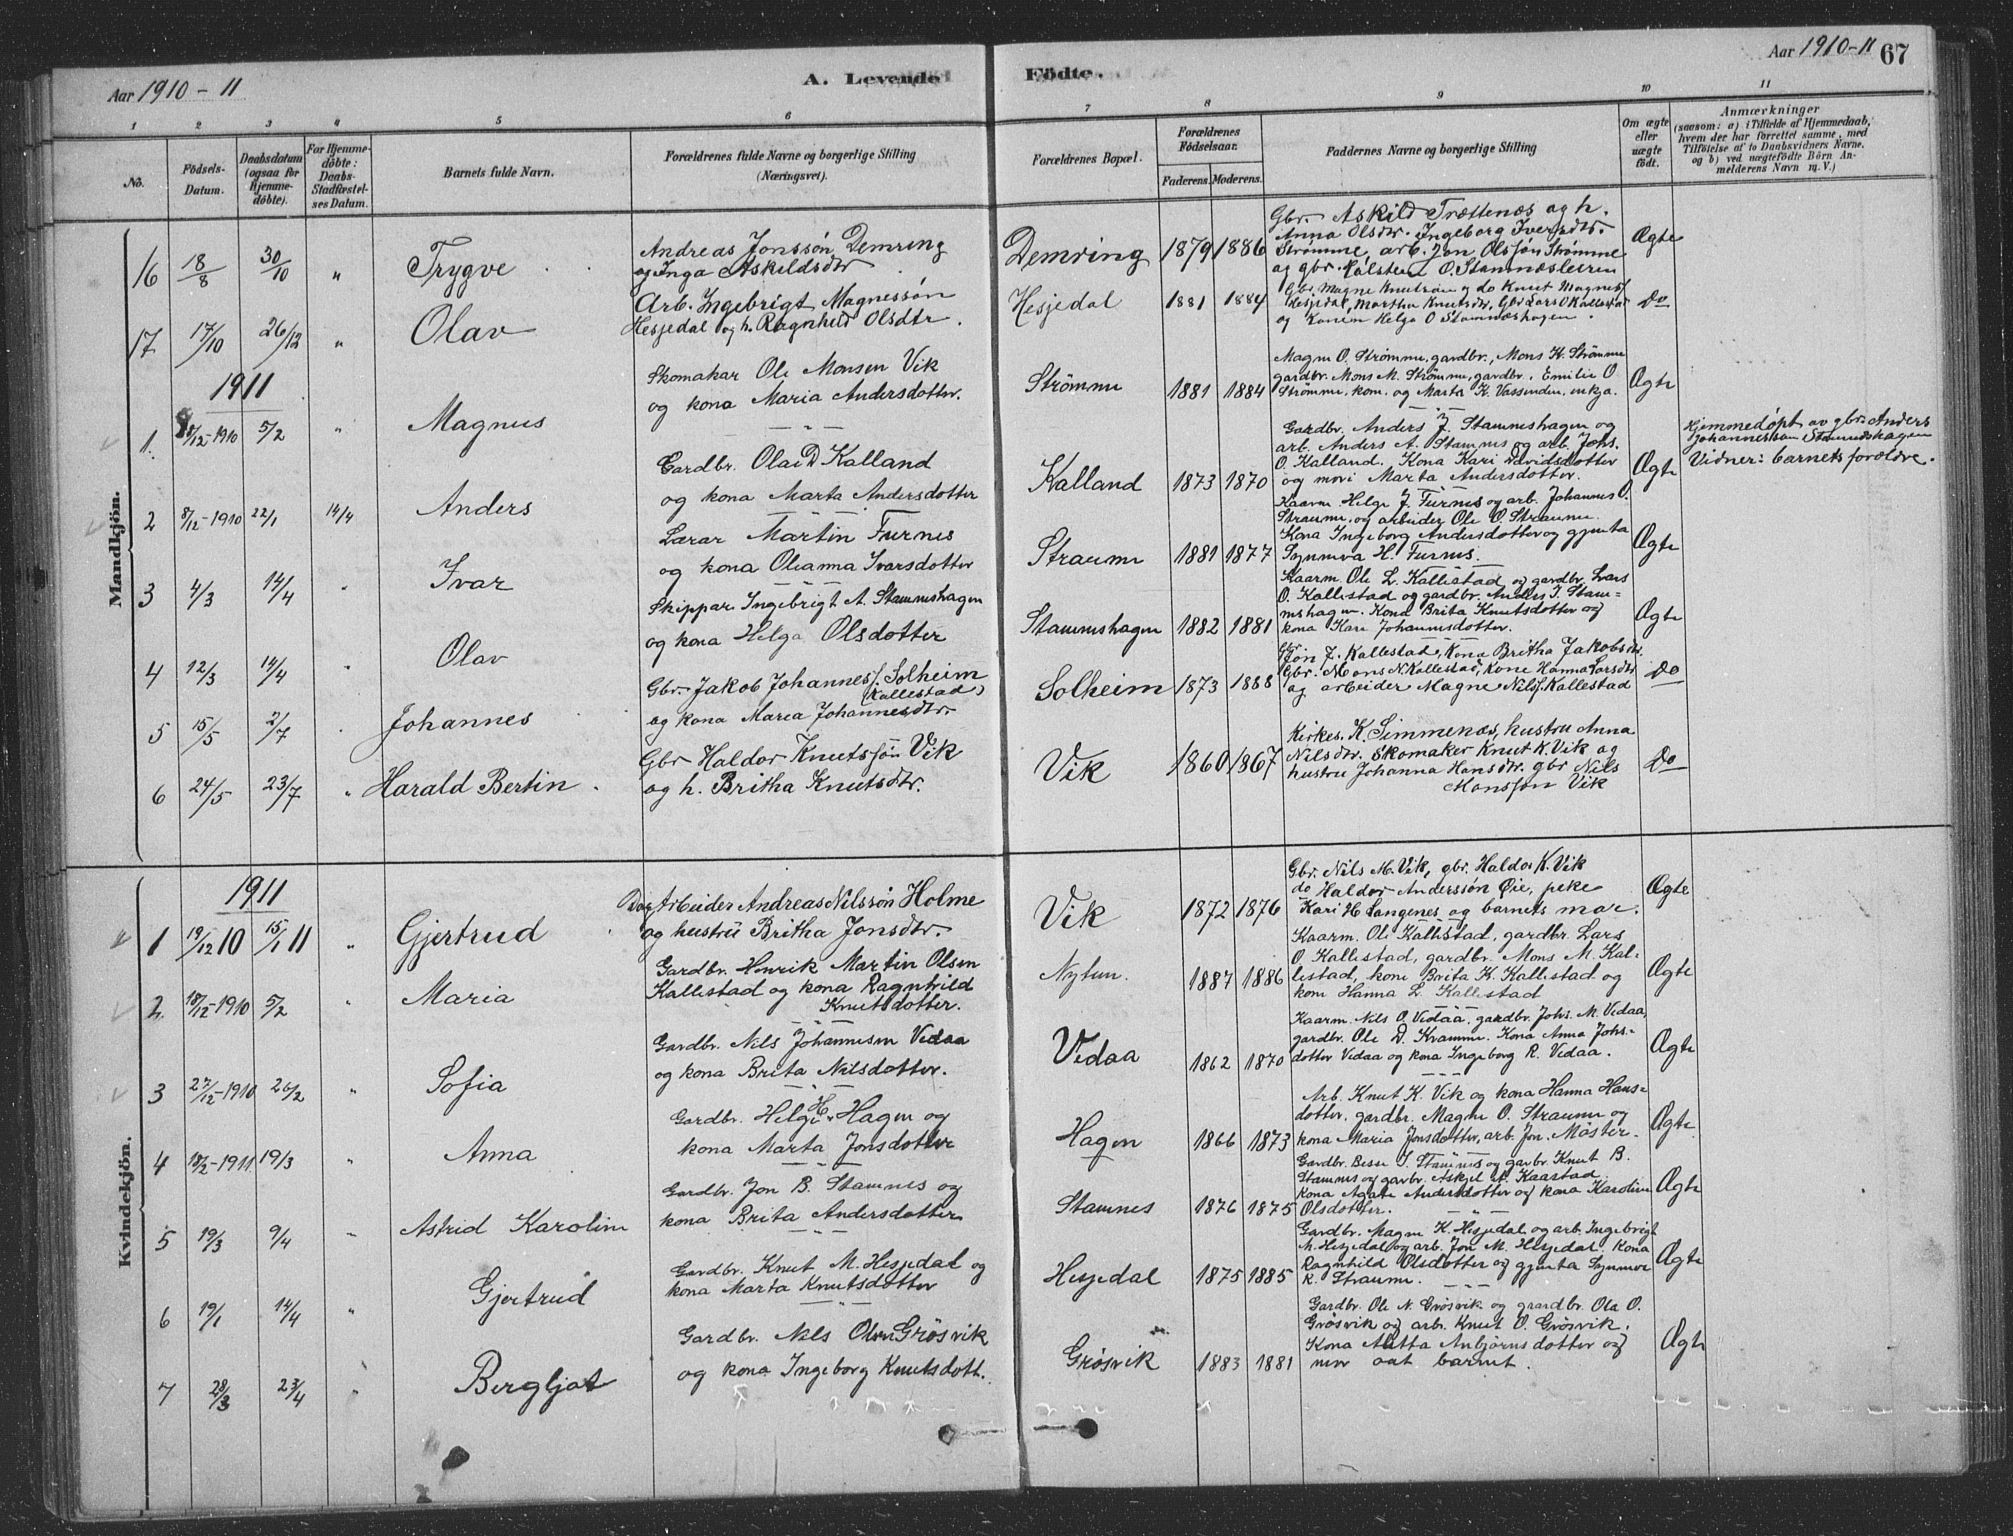 Aar 1910-11
A. Levende
1 2 3 4 5 6
No.
Fødsels-Datum.
Daabsdatum (ogsaa for Hjemmedøbte).
For Hjemmedøbte: Daabs-Stadfæstelses Datum.
Barnets fulde Navn.
Forældrenes fulde Navne og borgerlige Stilling (Næringsvei).
Mandkjön.
16 18/8 30/10 " Trygve
Andreas Jonssøn Demring
og Inga Askildsdtr
17 17/10 26/12 " Olav
Arb. Ingebrigt Magnessøn
Hesjedal og h. Ragnhild Olsdtr.
1911
1. 18/12-1910 5/2 " Magnus
Skomakar Ole Monsen Vik
og kona Maria Andersdotter.
2 8/12-1910 22/1 14/4 Anders
Gardbr. Ola D Kalland
og kona Marta Andersdotter
3 4/3 14/4 " Ivar
Lærar Martin Furnes
og kona Olianna Ivarsdotter
4 12/3 14/4 " Olav
Skippar Ingebrigt A. Stamneshagen
og kona Helga Olsdotter
5 15/5 2/7 " Johannes
Gbr. Jakob Johanness. Solheim
(Kallestad)
og kona Maria Johannesdtr.
6 24/5 23/7 " Harald Bertin
Gbr Haldor Knutssøn Vik
og h. Britha Knutsdtr.
Kvindekjön.
1911
1 19/12 10 15/1 11 " Gjertrud
Dag Arbeider Andreas Nilssøn Holme
og hustru Britha Jonsdtr.
2. 18/12-1910 5/2 " Maria
Gardbr. Henrik Martin Olsen
Kallestad og kona Ragnhild
Knutsdotter.
3 27/12-1910 26/2 " Sofia
Gardbr. Nils Johannesen Vidaa
og kona Brita Nilsdotter.
4 18/2-1911 19/3 " Anna
Gardbr. Helge H. Hagen og
kona Marta Jonsdotter
5 19/3 9/4 " Astrid Karoline
Gardbr. Jon B. Stamnes og
kona Brita Andersdotter
6 19/1 14/4 " Gjertrud
Gardbr. Knut M. Hesjedal og
kona Marta Knutsdotter
7 28/3 23/4 " Bergljot
Gardbr. Nils Olsen Grøsvik
og kona Ingeborg Knutsdott.
Födte.
Aar 1910-11 67
7 8 9 10 11
Forældrenes Bopæl.
Forældrenes Födselsaar.
Faderens. Moderens.
Faddernes Navne og borgerlige Stilling
Om ægte eller uægte födt.
Anmærkninger
(saasom: a) i Tilfælde af Hjemmedaab,
hvem der har forrettet samme, med
Tilföielse af to Daabsvidners Navne,
og b) ved uægtefödte Börn An-
melderens Navn m. V.)
Demring 1879 1886
Gbr. Askild Trættenæs og h.
Anna Olsdtr. Ingeborg Iversdtr.
Strømme, arb. Jon Olssøn Strømme
og gbr. Halsten O. Stamnæsleiren
Ægte
Hesjedal 1881 1884
Gbr. Magne Knutsøn og do Knut Magness
Hesjedal, Martha Knutsdtr, Gbr Lars O Kallestad
og Konen Helga O Stamnæshagen.
Do
Strömme 1881 1884
Magne O. Strømme, gardbr., Mons K. Strømme
gardbr. Mons M. Strømme, gardbr. Emilie O
Strømme, kone, og Marta K. Vassenden, enkja.
Ægte
Kalland 1873 1870
Gardbr. Anders J. Stamneshagen og
arb. Anders A. Stamnes og arb. Johs.
O. Kalland. Kona Kari Davidsdotter
og mori Marta Andersdotter.
Ægte
Hjemmedöpt av gbr. Anders
Johannessen Stamneshagen
Vidner: barnets forældre.
Straume 1881 1877
Kaarm Helge J. Furnes og arb. Johannes O.
Straume, og arbeider Ole O. Straume.
Kona Ingeborg Andersdotter og gjenta
Synneva H. Furnes.
Ægte
Stamneshagen 1882 1881
Kaarm. Ole L. Kallestad og gardbr. Lars
O. Kallestad og gardbr. Anders J. Stam=
neshagen. Kona Brita Knutsdotter og
kona Kari Johannesdotter.
Ægte
Solheim 1873 1888
Gbr Jon J. Kallestad, Kona Britha Jakobsdtr.
Gbr. Mons N. Kallestad, Kone Hanna Larsdtr
og arbeider Magne Nilss. Kallestad
Do
Vik 1860 1867
Kirkes. K. Simmenæs, hustru Anna
Nilsdtr. Skomaker Knut K. Vik og
hustru Johanna Hansdtr. gbr Nils
Monssøn Vik
Do
Vik 1872 1876
Gbr. Nils M. Vik, gbr. Haldor K. Vik
do Haldor Anderssøn Øie, peke
Kari H Langenes og barnets mor.
Ægte
Nytun. 1887 1886
Kaarm. Ole Kallestad, gardbr. Lars
O. Kallestad, gardbr. Mons M. Kal=
lestad, kone Brita K. Kallestad og
kone Hanna L. Kallestad
Ægte
Vidaa 1862 1870
Kaarm. Nils O Vidaa, gardbr. Johs. M. Vidaa,
gardbr. Ole D. Kvamme. Kona Anna Johs-
dotter Vidaa og kona Ingeborg R. Vidaa.
Ægte
Hagen 1866 1873
Arb. Knut K. Vik og kona Hanna Hans=
dotter, gardbr. Magne O. Straume og
kona Maria Jonsdotter, arb. Jon. Møster.
Ægte
Stamnes 1876 1875
Gardbr. Besse J. Stamnes og gardbr. Knut B.
Stamnes og gardbr. Askjel A. Kaarstad.
Kona Agate Andersdotter og kona Karoline
Olsdotter.
Ægte
Hesjedal 1875 1885
Gardbr. Magne K. Hesjedal og arb. Ingebrigt
M. Hesjedal og arb. Jon M. Hesjedal. Kona
Ragnhild Olsdotter og gjenta Synneve
K. Straume.
Ægte
Grøsvik 1883 1881
Gardbr. Ole N. Grøsvik og grardbr. Ola O.
Grøsvik og arb. Knut O. Grøsvik.
Kona Anbjørnsdotter og
mor aat barnet.
Ægte